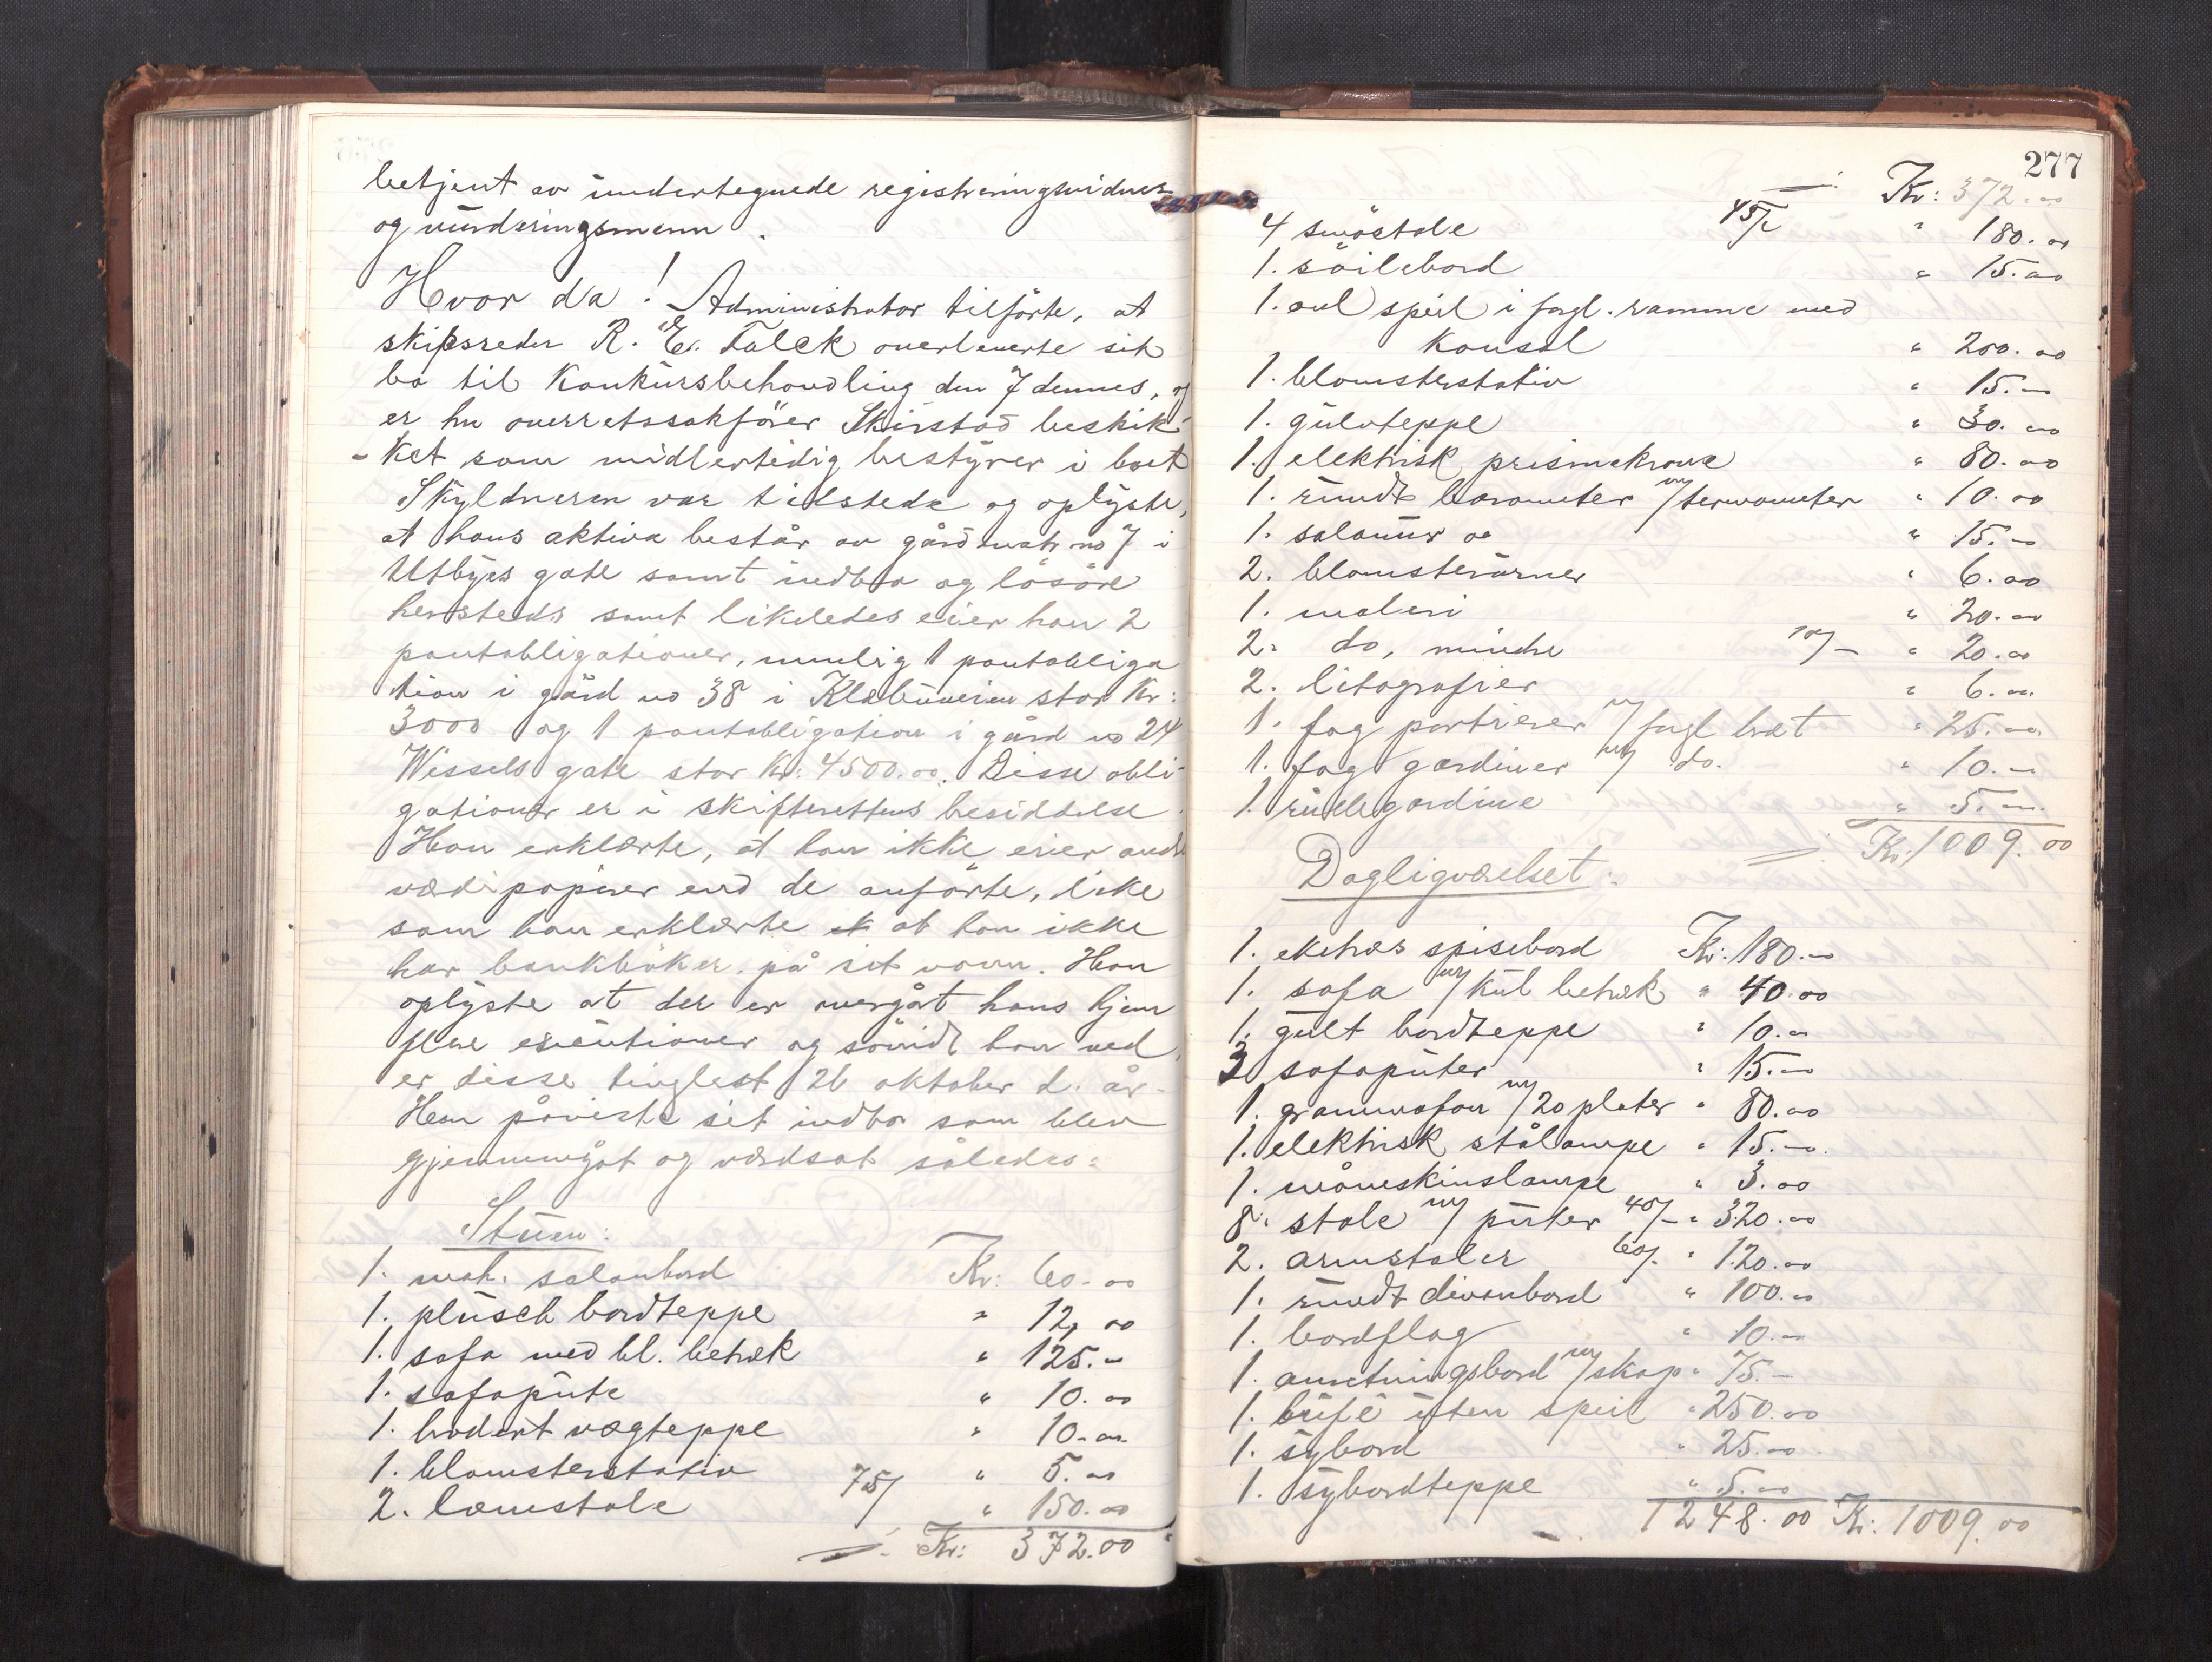 betjent av undertegnede registreringsvidner
og vurderingsmenn.
Hvor da! Administrator tilførte, at
skipsreder R. E. Falck overleverte sit
bo til Konkursbehandling den 7 dennes, og
er hr overretssakfører Skirstad beskik-
-ket som midlertidig bestyrer i boet
Skyldneren var tilstede og oplyste,
at hans aktiva består av gård matr no 7 i
Utbyes gate samt indbo og løsøre
hersteds samt likeledes eier han 2
pantobligationer, nemlig 1 pantobliga
tion i gård no 38 i Klæbuveien stor Kr:
3000 og 1 pantobligation i gård no 24
Wessels gate stor Kr: 4500.00. Disse obli-
gationer er i skifterettens besiddelse.
Han erklærte, at han ikke eier andre
værdipapirer end de anførte, like
som han erklærte at han ikke
har bankbøker på sit navn. Han
oplyste at der er overgåt hans hjem
flere executioner og såvidt han ved,
er disse tinglest 26 oktober d. år.
Han påviste sit indbo som blev
gjennemgåt og værdsat således:
Stuen:
1. mah. salonbord Kr: 60.00
1. plusch bordteppe " 12,00
1. sofa med bl. betræk " 125.-
1. sofapute " 10.00
1. brodert vægteppe " 10.00
1. blomsterstativ " 5.00
2. lænestole 75/ " 150.00
Kr: 372.00
277
Kr: 372.00
4 småstole 45/- " 180.00
1. søilebord " 15.00
1. oval speil i forgl. ramme med
Konsol " 200.00
1. blomsterstativ " 15.-
1. gulvteppe " 30.00
1. elektrisk prismekrone " 80.00
1. rundt barometer m/termometer " 10.00
1. salonur " 15.-
2. blomsterurner " 6.00
1. maleri " 20.00
2. do, mindre 10/- " 20.00
2. litografier " 6.00
1. fag portierer m/forgl bræt " 25.00
1. fag gardiner m/ do. " 10.-
1. rullegardine " 5.00
Kr: 1009.00
Dagligværelset:
1. eketræs spisebord Kr: 180.-
1. sofa m/kul betræk " 40.00
1. gult bordteppe " 10.00
3 sofaputer " 15.-
1. grammofon m/20 plater " 80.00
1. elektrisk stålampe " 15.-
1. måneskinslampe " 3.00
8. stole m/ puter 40/- " 320.00
2. armstoler 60/- " 120.00
1. rundt divanbord " 100.00
1. bordflag " 10.-
1. anretningsbord m/skap " 75.-
1. bufé uten speil " 250.00
1. sybord " 25.00
1. sybordteppe " 5.00
1248.00 Kr: 1009.00